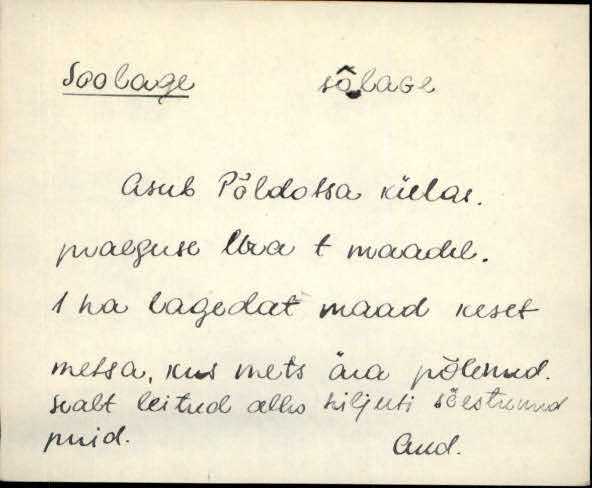 Soolage sō̬laGe
Asub Põldotsa külas.
praeguse Uva t maadel.
1 ha lagedat maad keset
metsa, kus mets ära põlenud.
sealt leitud alles hiljuti söestunud
puid. Aud.